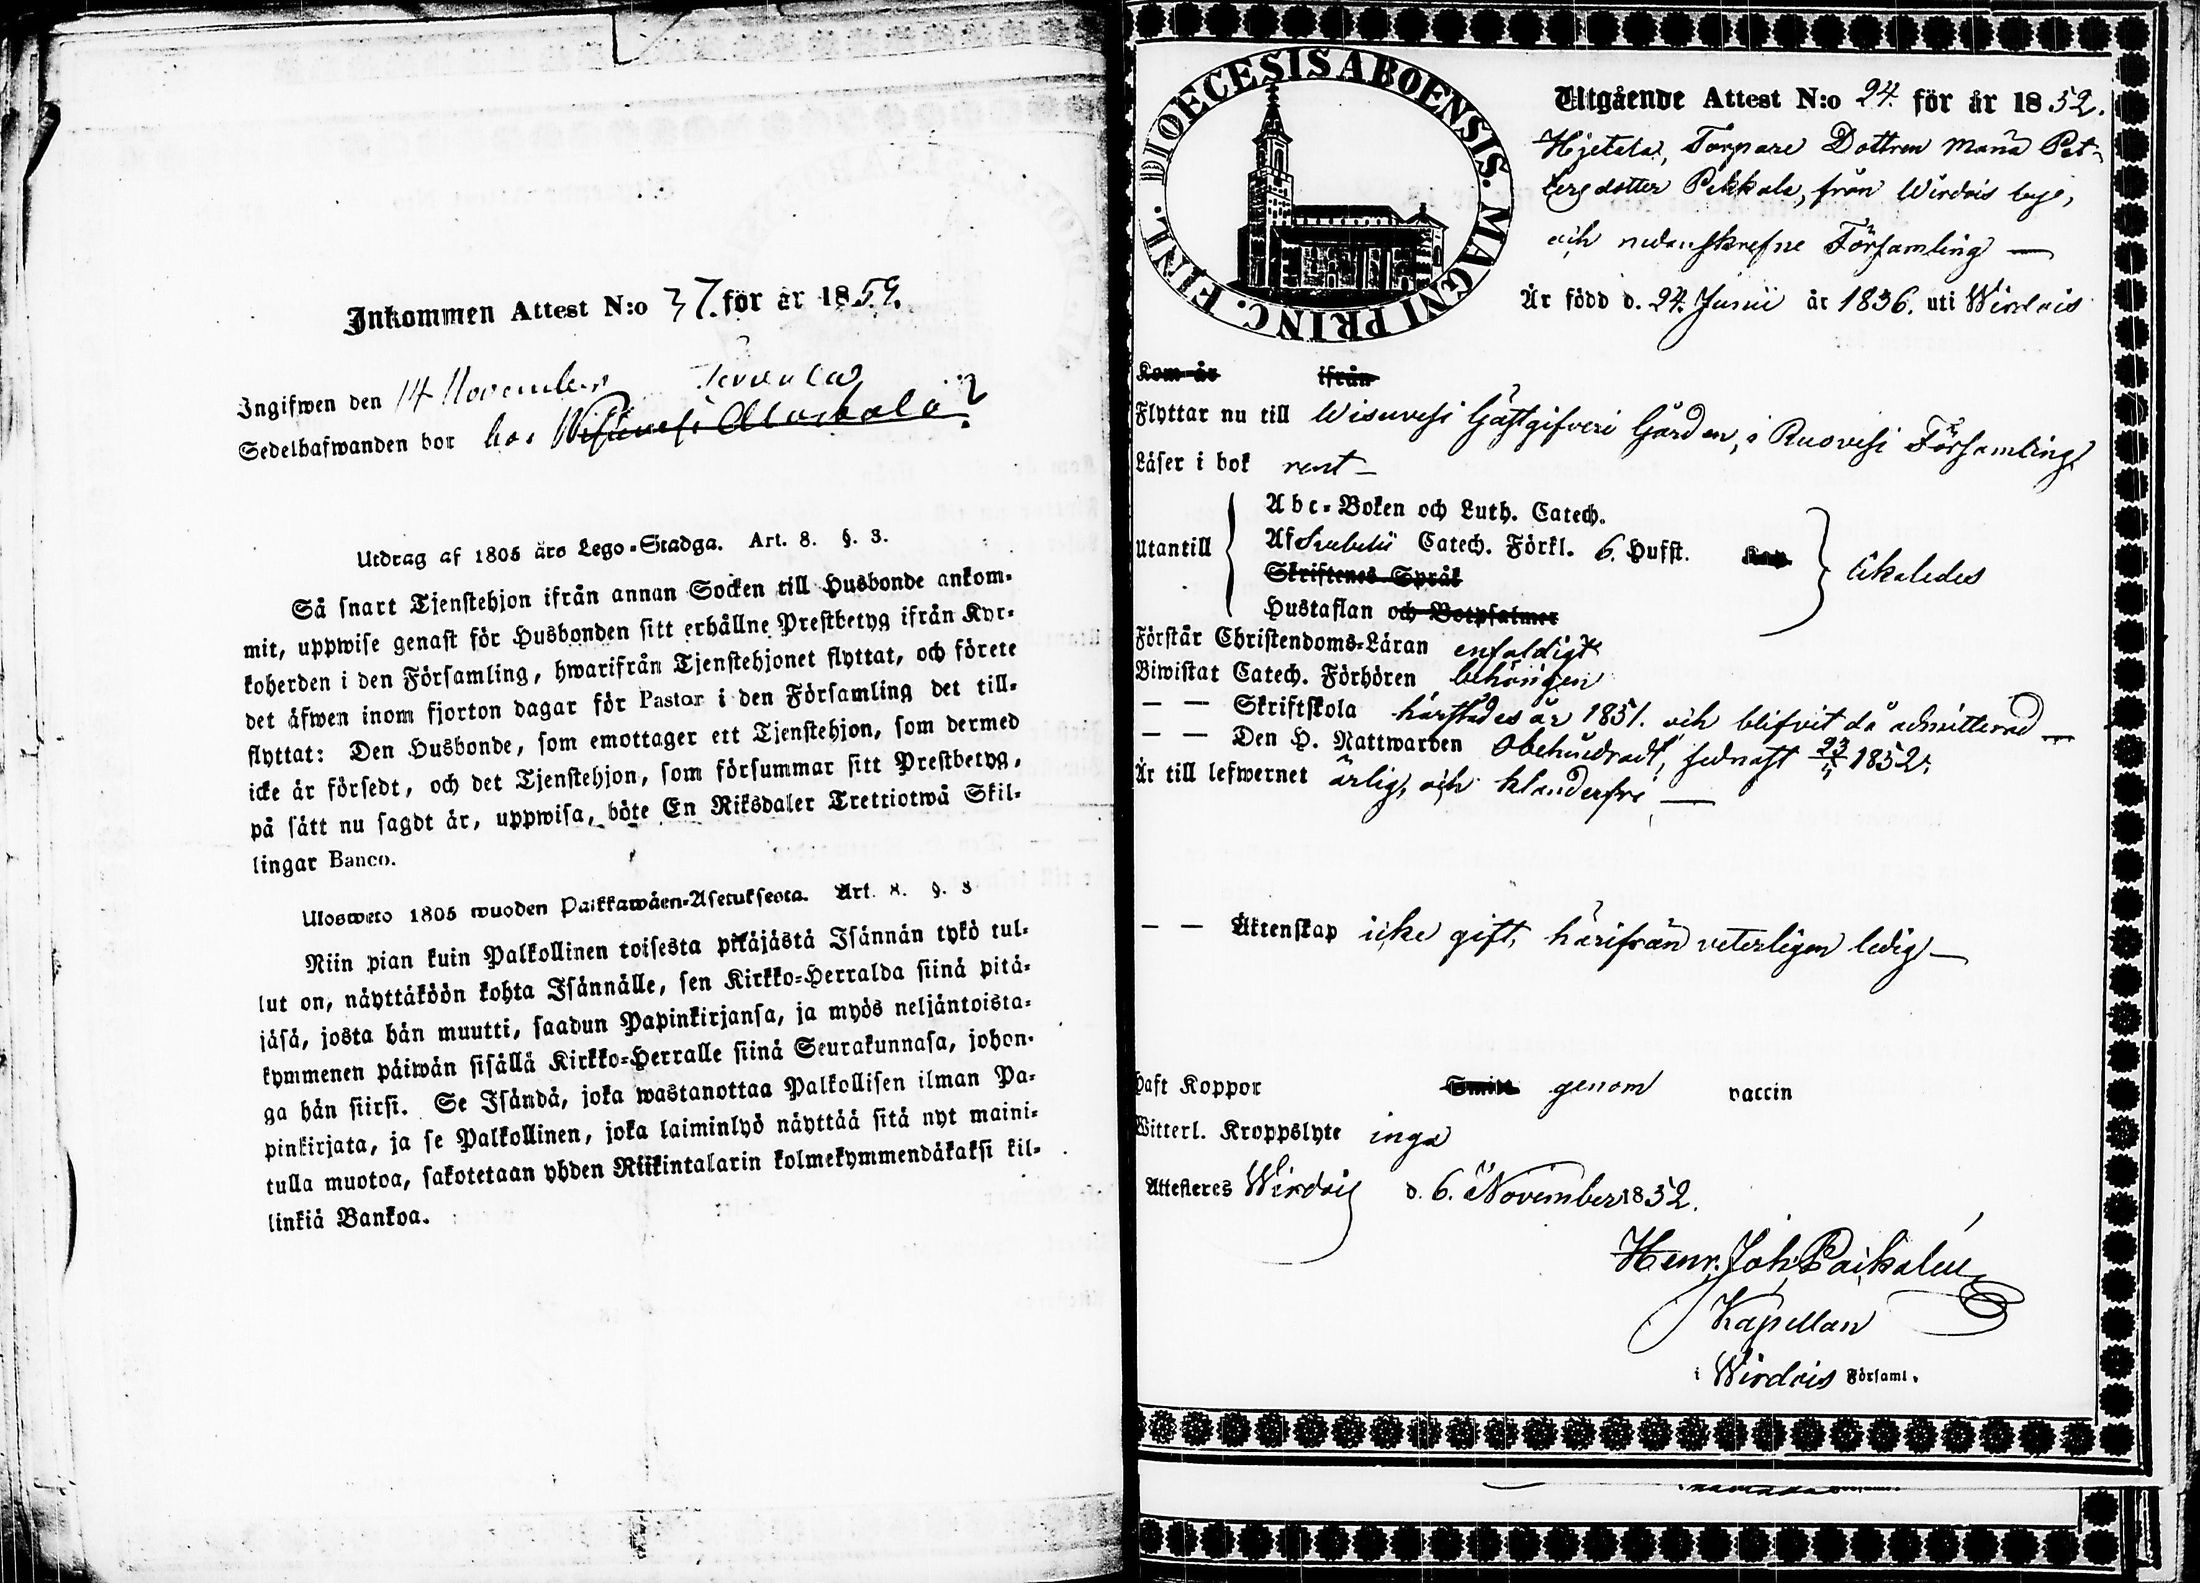 Inkommen Attest N:o 37. för år 1859.
Ingifwen den 14 November
Sedelhafwanden bor hos
Utdrag af 1805 års Lego-Stadga. Art. 8. §. 3.
Så snart Tjenstehjon ifrån annan Socken till Husbonde ankom-
mit, uppwise genast för Husbonden sitt erhållne Prestbetyg ifrån Kyr-
koherden i den Församling, hwarifrån Tjenstehjonet flyttat, och förete
det äfwen inom fjorton dagar för Pastor i den Församling det till-
flyttat: Den Husbonde, som emottager ett Tjenstehjon, som dermed
icke är försedt, och det Tjenstehjon, som försummar sitt Prestbetyg,
på sätt nu sagdt är, uppwisa, böte En Riksdaler Trettiotwå Skil-
lingar Banco.
Ulosweto 1805 wuoden Palkkawäen-Asetuksesta. Art. 8. §. 3
Niin pian kuin Palkollinen toisesta pitäjästä Isännän tykö tul-
lut on, näyttäköön kohta Isännälle, sen Kirkko-Herralda siinä pitä-
jäsä, josta hän muutti, saadun Papinkirjansa, ja myös neljäntoista-
kymmenen päiwän sisällä Kirkko-Herralle siinä Seurakunnasa, johon-
ga hän siirsi. Se Isändä, joka wastanottaa Palkollisen ilman Pa-
pinkirjata, ja se Palkollinen, joka laiminlyö näyttää sitä nyt maini-
tulla muotoa, sakotetaan yhden Riikintalarin kolmekymmendäkaksi kil-
linkiä Bankoa.
DIOECESIS ABOENSIS. MAGNI PRINC. FINL.
Utgående Attest N:o 24. för år 1852.
Hjetala, Torpare Dottren Maria Pet-
tersdotter Pekkala, från Wirdois by,
och nedanskrefne Församling —
Är född d. 24. Junii år 1836. uti Wirdois
Kom år ifrån
Flyttar nu till Wisuvesi Gästgifveri Gården, i Ruovesi Församling
Läser i bok rent —
Utantill
Abc-Boken och Luth. Catech.
Af Svebelii Catech. Förkl. 6. Hufst. Kap.
Skriftenes Språk
Hustaflan och Botpsalmer
likaledes
Förstår Christendoms-Läran enfaldigt
Biwistat Catech. Förhören behörigen
— — Skriftskola härstädes år 1851. och blifvit då admitterad —
— — Den H. Nattwarden obehindradt, sednast 1852.
Är till lefwernet ärlig, och klanderfri —
— — Äktenskap icke gift, härifrån veterligen ledig —
Haft Koppor genom vaccin
Witterl. Kroppslyte inga
Attesteres Wirdois d. 6. November 1852.
Henr. Joh. Paikalén
Kapellan
i Wirdois Församl.